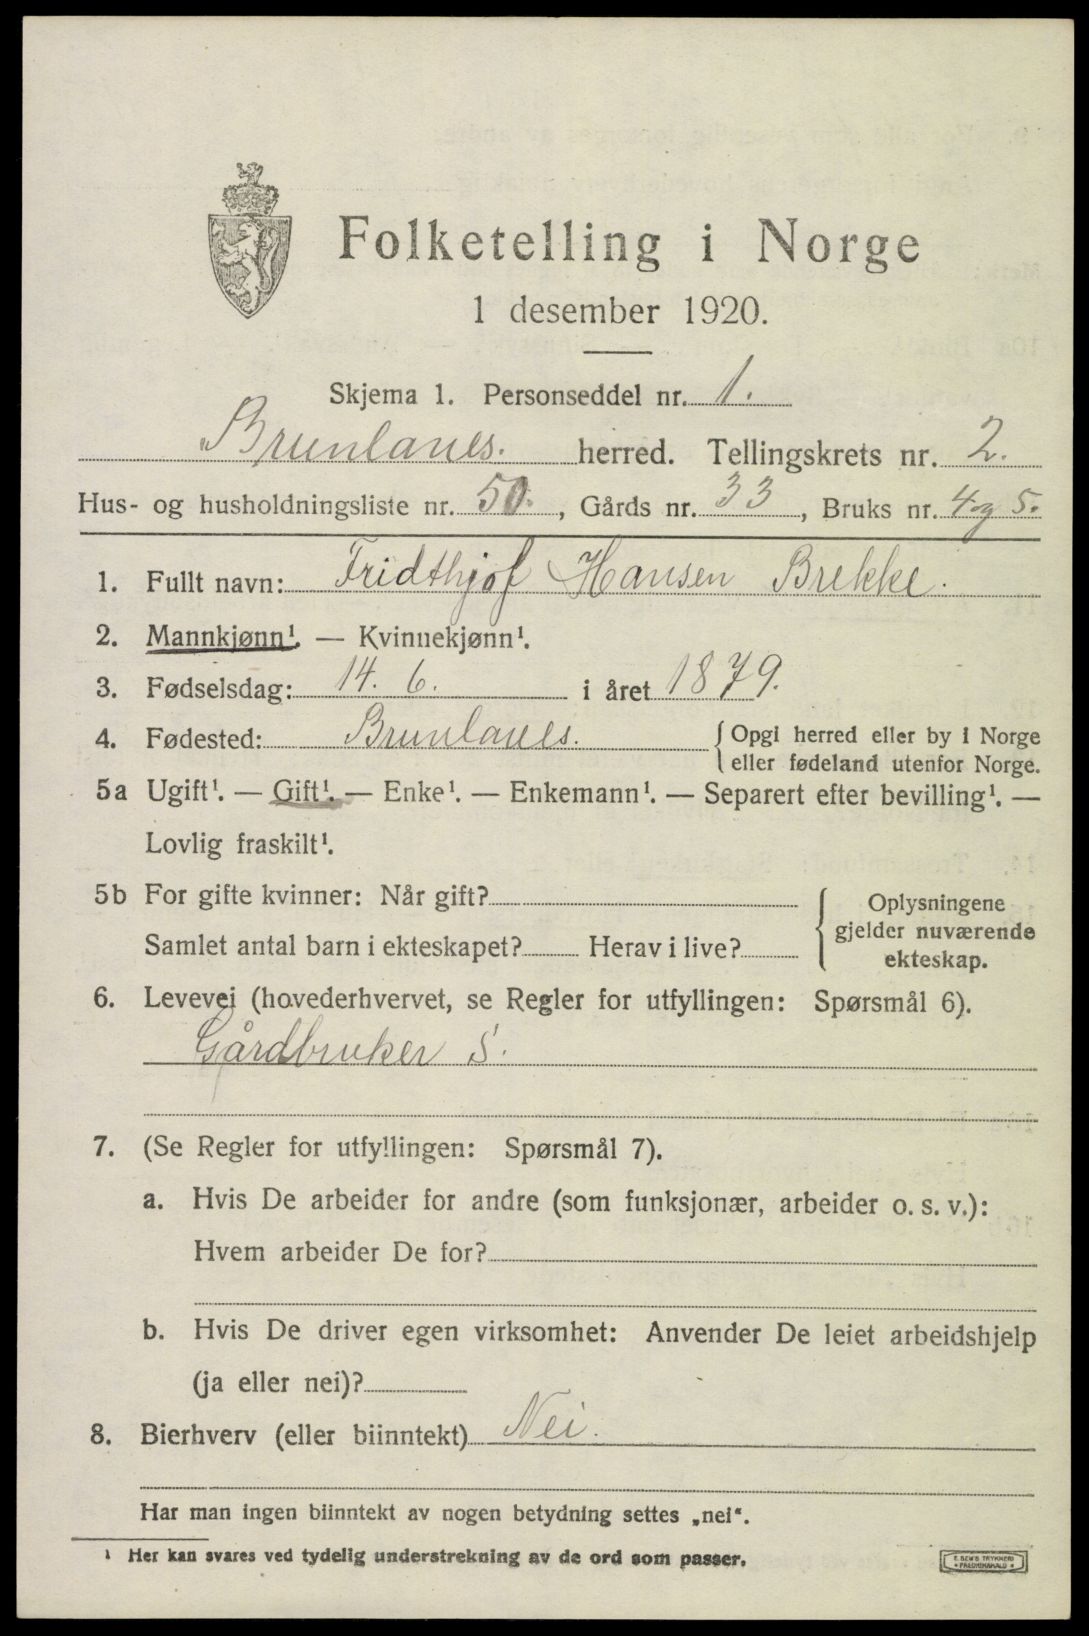 Folketelling i Norge
1 desember 1920.
Skjema 1. Personseddel nr. 1.
Brunlanes. herred. Tellingskrets nr. 2.
Hus- og husholdningsliste nr. 50., Gårds nr. 33, Bruks nr. 4 og 5.
1. Fullt navn: Fridthjof Hansen Brekke.
2. Mannkjønn¹. — Kvinnekjønn¹.
3. Fødselsdag: 14. 6. i året 1879.
4. Fødested: Brunlanes. { Opgi herred eller by i Norge
eller fødeland utenfor Norge.
5a Ugift¹. — Gift¹. — Enke¹. — Enkemann¹. — Separert efter bevilling¹. —
Lovlig fraskilt¹.
5b For gifte kvinner: Når gift? { Oplysningene
gjelder nuværende
Samlet antal barn i ekteskapet? Herav i live?
ekteskap.
6. Levevei (hovederhvervet, se Regler for utfyllingen: Spørsmål 6).
Gårdbruker S.
7. (Se Regler for utfyllingen: Spørsmål 7).
a. Hvis De arbeider for andre (som funksjonær, arbeider o. s. v.):
Hvem arbeider De for?
b. Hvis De driver egen virksomhet: Anvender De leiet arbeidshjelp
(ja eller nei)?
8. Bierhverv (eller biinntekt) Nei.
Har man ingen biinntekt av nogen betydning settes „nei“.
¹ Her kan svares ved tydelig understrekning av de ord som passer.
E. SEM'S TRYKKERI
FREDRIKSHALD